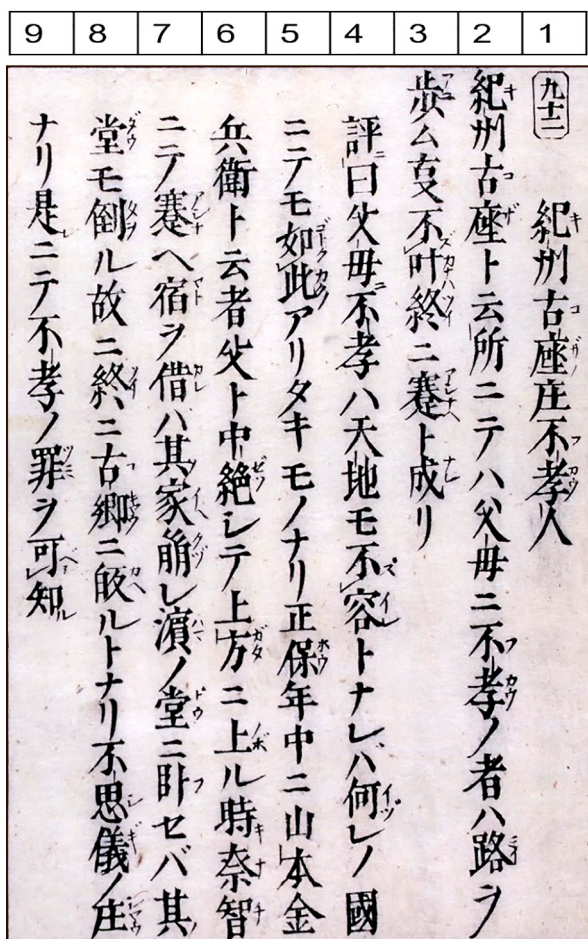 9 8 7 6 5 4 3 2 1
九十二 紀州古座庄不孝人
紀州古座ト云所ニテハ父母ニ不孝ノ者ハ路ヲ
歩ム叓不叶終ニ蹇ト成リ
評曰父母不孝ハ天地モ不容トナレバ何レノ國
ニテモ如此アリタキモノナリ正保年中ニ山本金
兵衛ト云者父ト中絶シテ上方ニ上ル時奈智
ニテ蹇ヘ宿ヲ借バ其家崩レ濱ノ堂ニ卧セバ其
堂モ倒ル故ニ終ニ古郷ニ皈ルトナリ不思儀ノ庄
ナリ是ニテ不孝ノ罪ヲ可知